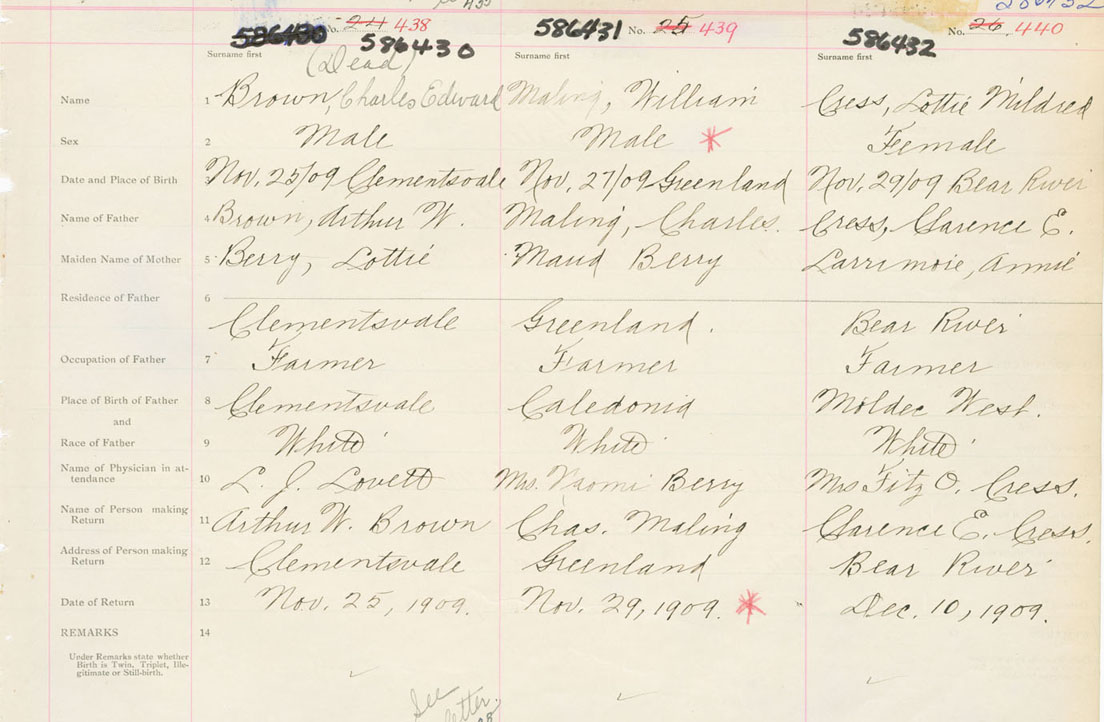 586430 No. 24 438 586431 No. 25 439 586432 No. 26 440
586430
Surname first (Dead) Surname first Surname first
Name 1 Brown, Charles Edward Maling, William Cress, Lottie Mildred
Sex 2 Male Male * Female
Date and Place of Birth Nov. 25/09 Clementsvale Nov. 27/09 Greenland Nov. 29/09 Bear River
Name of Father 4 Brown, Arthur W. Maling, Charles. Cress, Clarence E.
Maiden Name of Mother 5 Berry, Lottie Maud Berry Larrimore, Annie
Residence of Father 6
Clementsvale Greenland. Bear River
Occupation of Father 7 Farmer Farmer Farmer
Place of Birth of Father 8 Clementsvale Caledonia West.
and
Race of Father 9 White White White
Name of Physician in at-
tendance 10 L. J. Lovett Mrs. Naomi Berry Mrs Fitz O. Cress.
Name of Person making
Return 11 Arthur W. Brown Chas. Maling Clarence E. Cress.
Address of Person making
Return 12 Clementsvale Greenland Bear River
Date of Return 13 Nov. 25, 1909. Nov. 29, 1909. * Dec. 10, 1909.
REMARKS 14
Under Remarks state whether
Birth is Twin, Triplet, Ille-
gitimate or Still-birth.
See
letter.